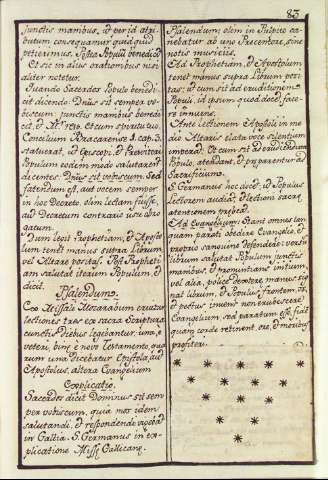 83
junctis manibus, ut per id atri-
butum consequamur quidquid
petierimus. Posta Populũ benedict
Et sic in aliis orationibus nisi
aliter notetur.
Quando Sacerdos Populo benedi-
cit dicendo: Dñus sit semper vo-
biscum: junctis manibus benedi-
cit, & Rs. Et cum spiritu tuo
Concilium Bracarense I. cap. 3.
statuerat, ut Episcopi, & Presbyteri
Populum eodem modo salutarent
dicentes: Dñus sit vobiscum. Sed
fatendum est, aut vocem semper
in hoc Decreto olim lectam fuisse,
aut Decretum contrario usu abro
gatum.
Dum legit Prophetiam, & Aposto
lum tenet manus supra Librum,
vel Altare positas. Post Propheti-
am salutat iterum Populum, &
dicit.
Psallendum.
Ex Missali Mozarabum eruitur
lectiones tres ex sacra Scriptura
cunctis diebus legibantur: una, e
veteri, binę, e novo Testamento, qua-
rum una dicebatur Epistola, aut
Apostolus, altera Evangelium
Explicatio.
Sacerdos dicit Dominus sit sem
per vobiscum, quia mos idem
salutandi, & respondendi
in Gallia. S. Germanus in ex-
plicatione Missę Gallicanę.
Psalendum, olem in Pulpito ca-
nebatur ab uno Precentore, sine
notis musicis.
Ad Prophetiam, & Apostolum
tenet manus supra librum posi-
tas; ut cum sit ad eruditionem
Populi, id ipsum quod docet, face-
re innuens.
Ante lectionem Apostoli in me
dio Altaris elata voce silentium
imperat: Et cum sit ad erudiendum
Populo, attendant, & prę parentur ad
Sacrificium.
S. Germanus hoc docet: ut Populus
Lectorem audiat, & lectioni sacrę
atentionem prębeat.
Ad Evangelium: Stant omnes tam
quam parati obedire Evangelio, &
proprio sanguine defendere: versu
librum salutat Populum junctis
manibus, & pronuntians initium,
vel alia, police dextere manus sig-
nat librum, & Populus frontem, os,
& pectus, innens non erubescere
Evangelium, sed paratum esse fidei
quam corde retinent, ore, & moribus
profiteri.